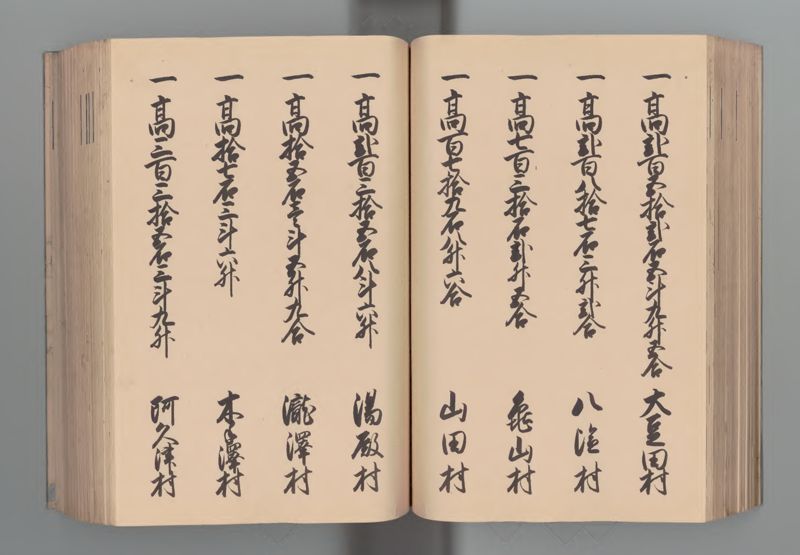 一 高弐百五拾弐石五斗九升五合 大豆田村
一 高弐百八拾七石三升弐合 八塩村
一 高七百三拾石弐升五合 亀山村
一 高百七拾九石八升六合 山田村
一 高弐百三拾五石八斗六升 湯殿村
一 高拾五石壱斗五升九合 瀧澤村
一 高拾七石三斗六升 本澤村
一 高三百三拾五石三斗九升 阿久津村